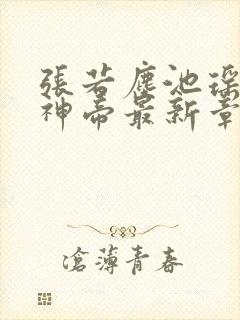 張若塵池瑤
神帝最新章
滄薄青春